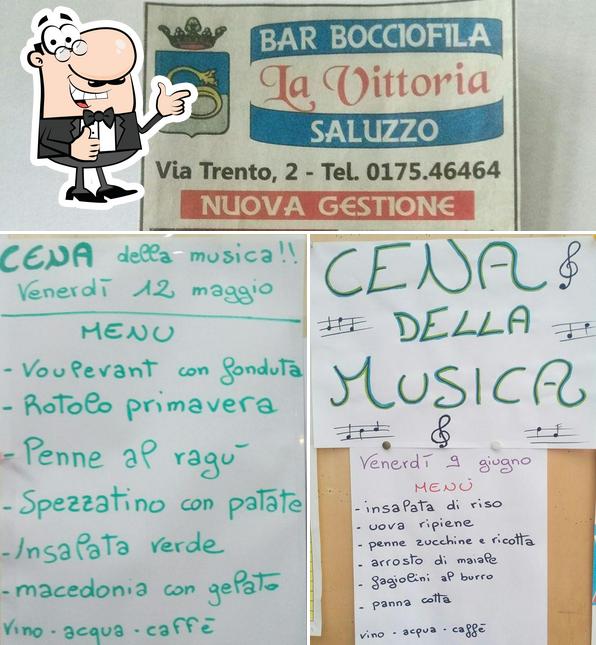 BAR BOCCIOFILA
La Vittoria
SALUZZO
Via Trento, 2 - Tel. 0175.46464
NUOVA GESTIONE
CENA della musica!!
Venerdì 12 maggio
MENU
- Voulevant con fonduta
- Rotolo primavera
- Penne al ragù
- Spezzatino con patate
- Insalata verde
- macedonia con gelato
vino - acqua - caffè
CENA
DELLA
MUSICA
Venerdì 9 giugno
MENÙ
- insalata di riso
- uova ripiene
- penne zucchine e ricotta
- arrosto di maiale
- fagiolini al burro
- panna cotta
vino - acqua - caffè